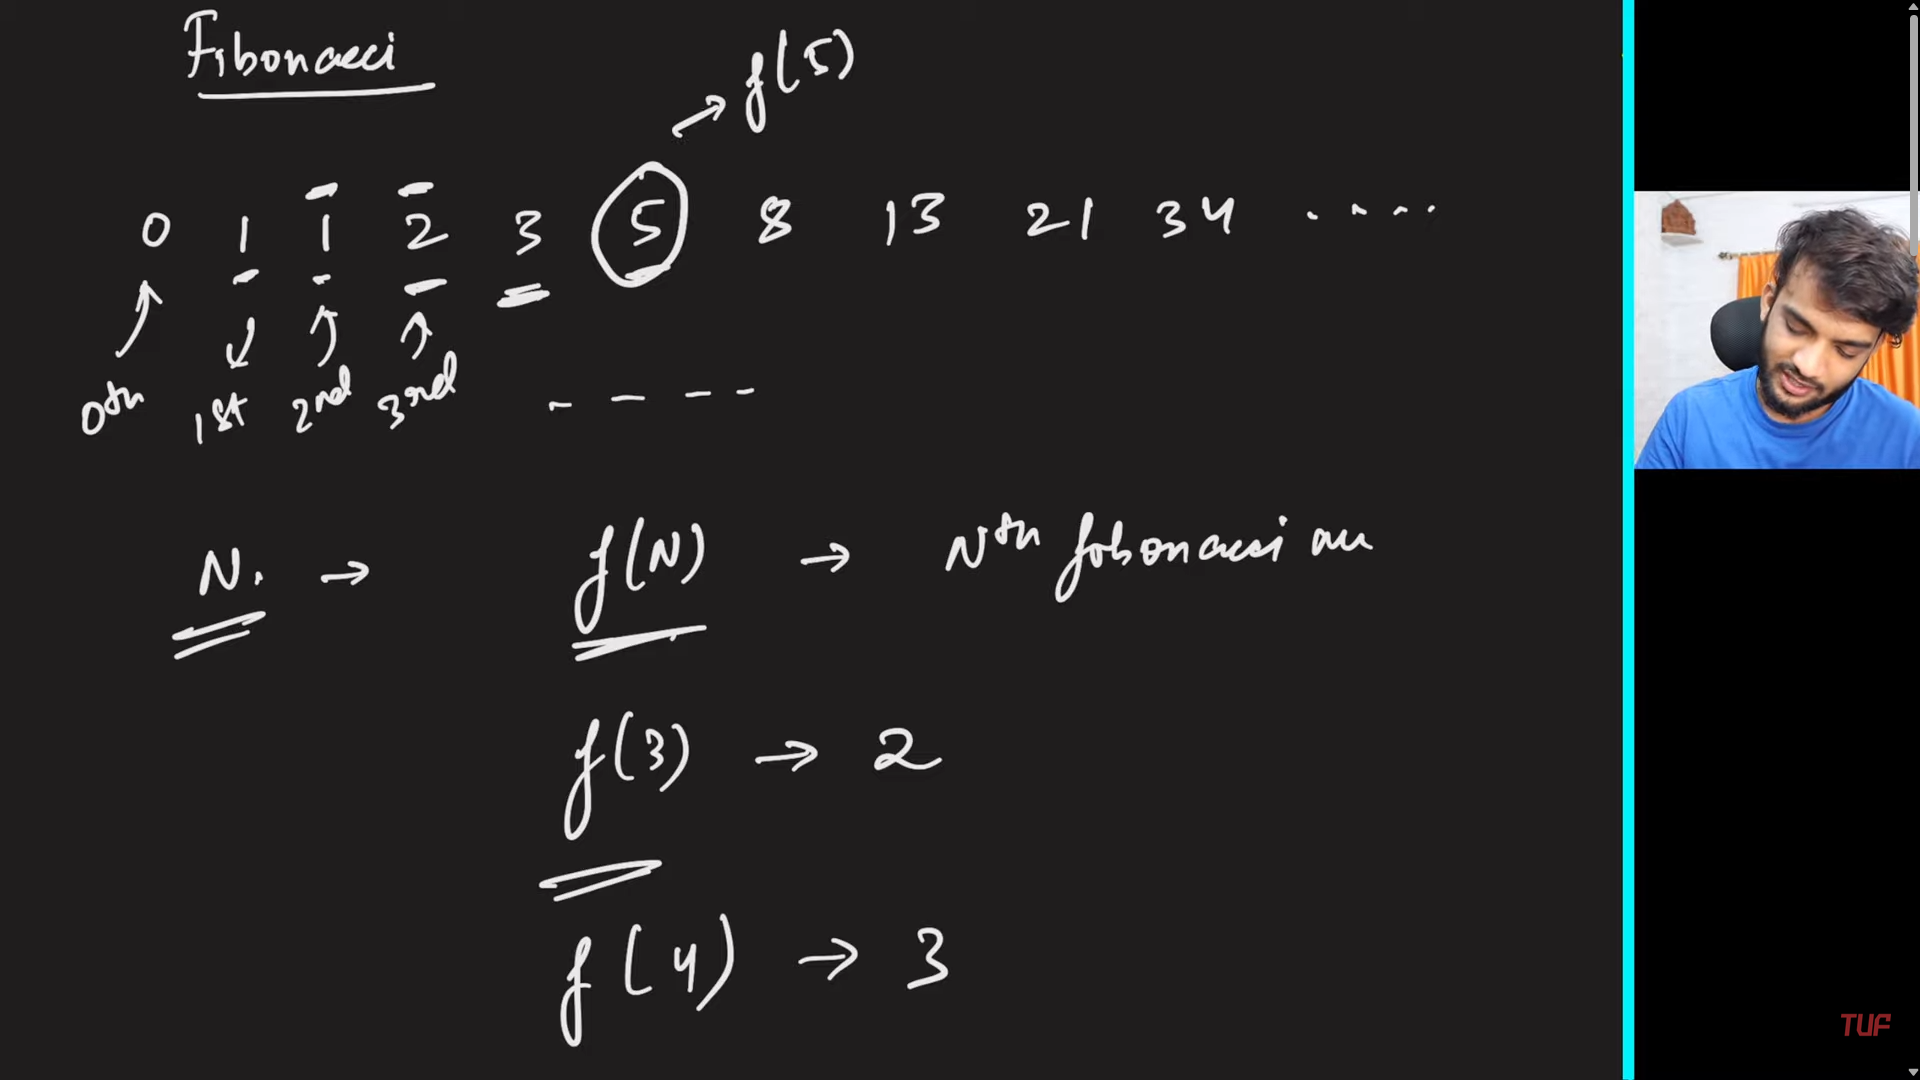 Fibonacci
f(5)
0 1 1 2 3 5 8 13 21 34 ....
0th 1st 2nd 3rd - - - -
N. → f(N) → Nth fobonacci
f(3) → 2
f(4) → 3
TUF